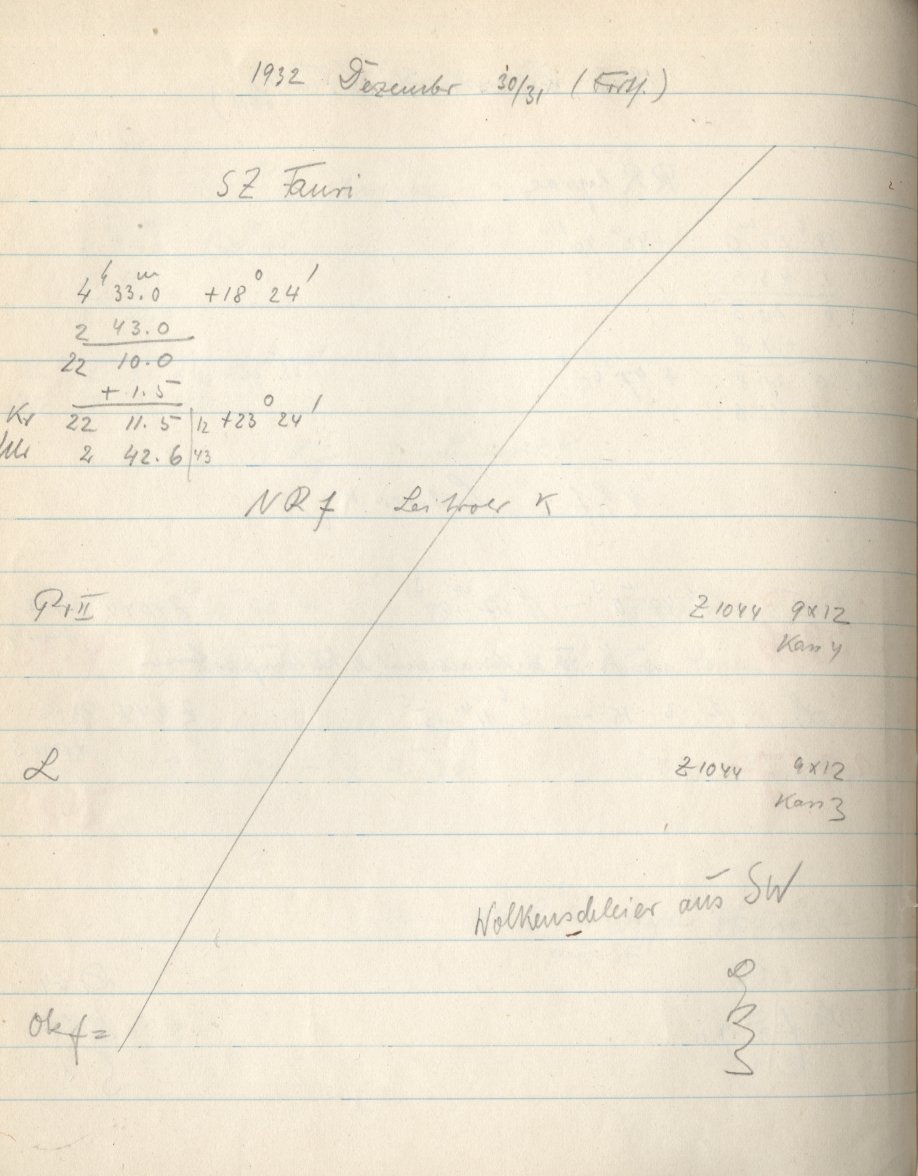 1932 Dezember 30/31 (Forts.)
SZ Tauri
4ʰ 33.0ᵐ +18° 24'
2 43.0
22 10.0
+ 1.5
Kr 22 11.5 | 12 +23° 24'
2 42.6 | 43
NR f K
Pr II Z 1044 9x12
Kass 4
L Z 1044 9x12
Kass 3
Wolkenschleier aus SW
Ok f =